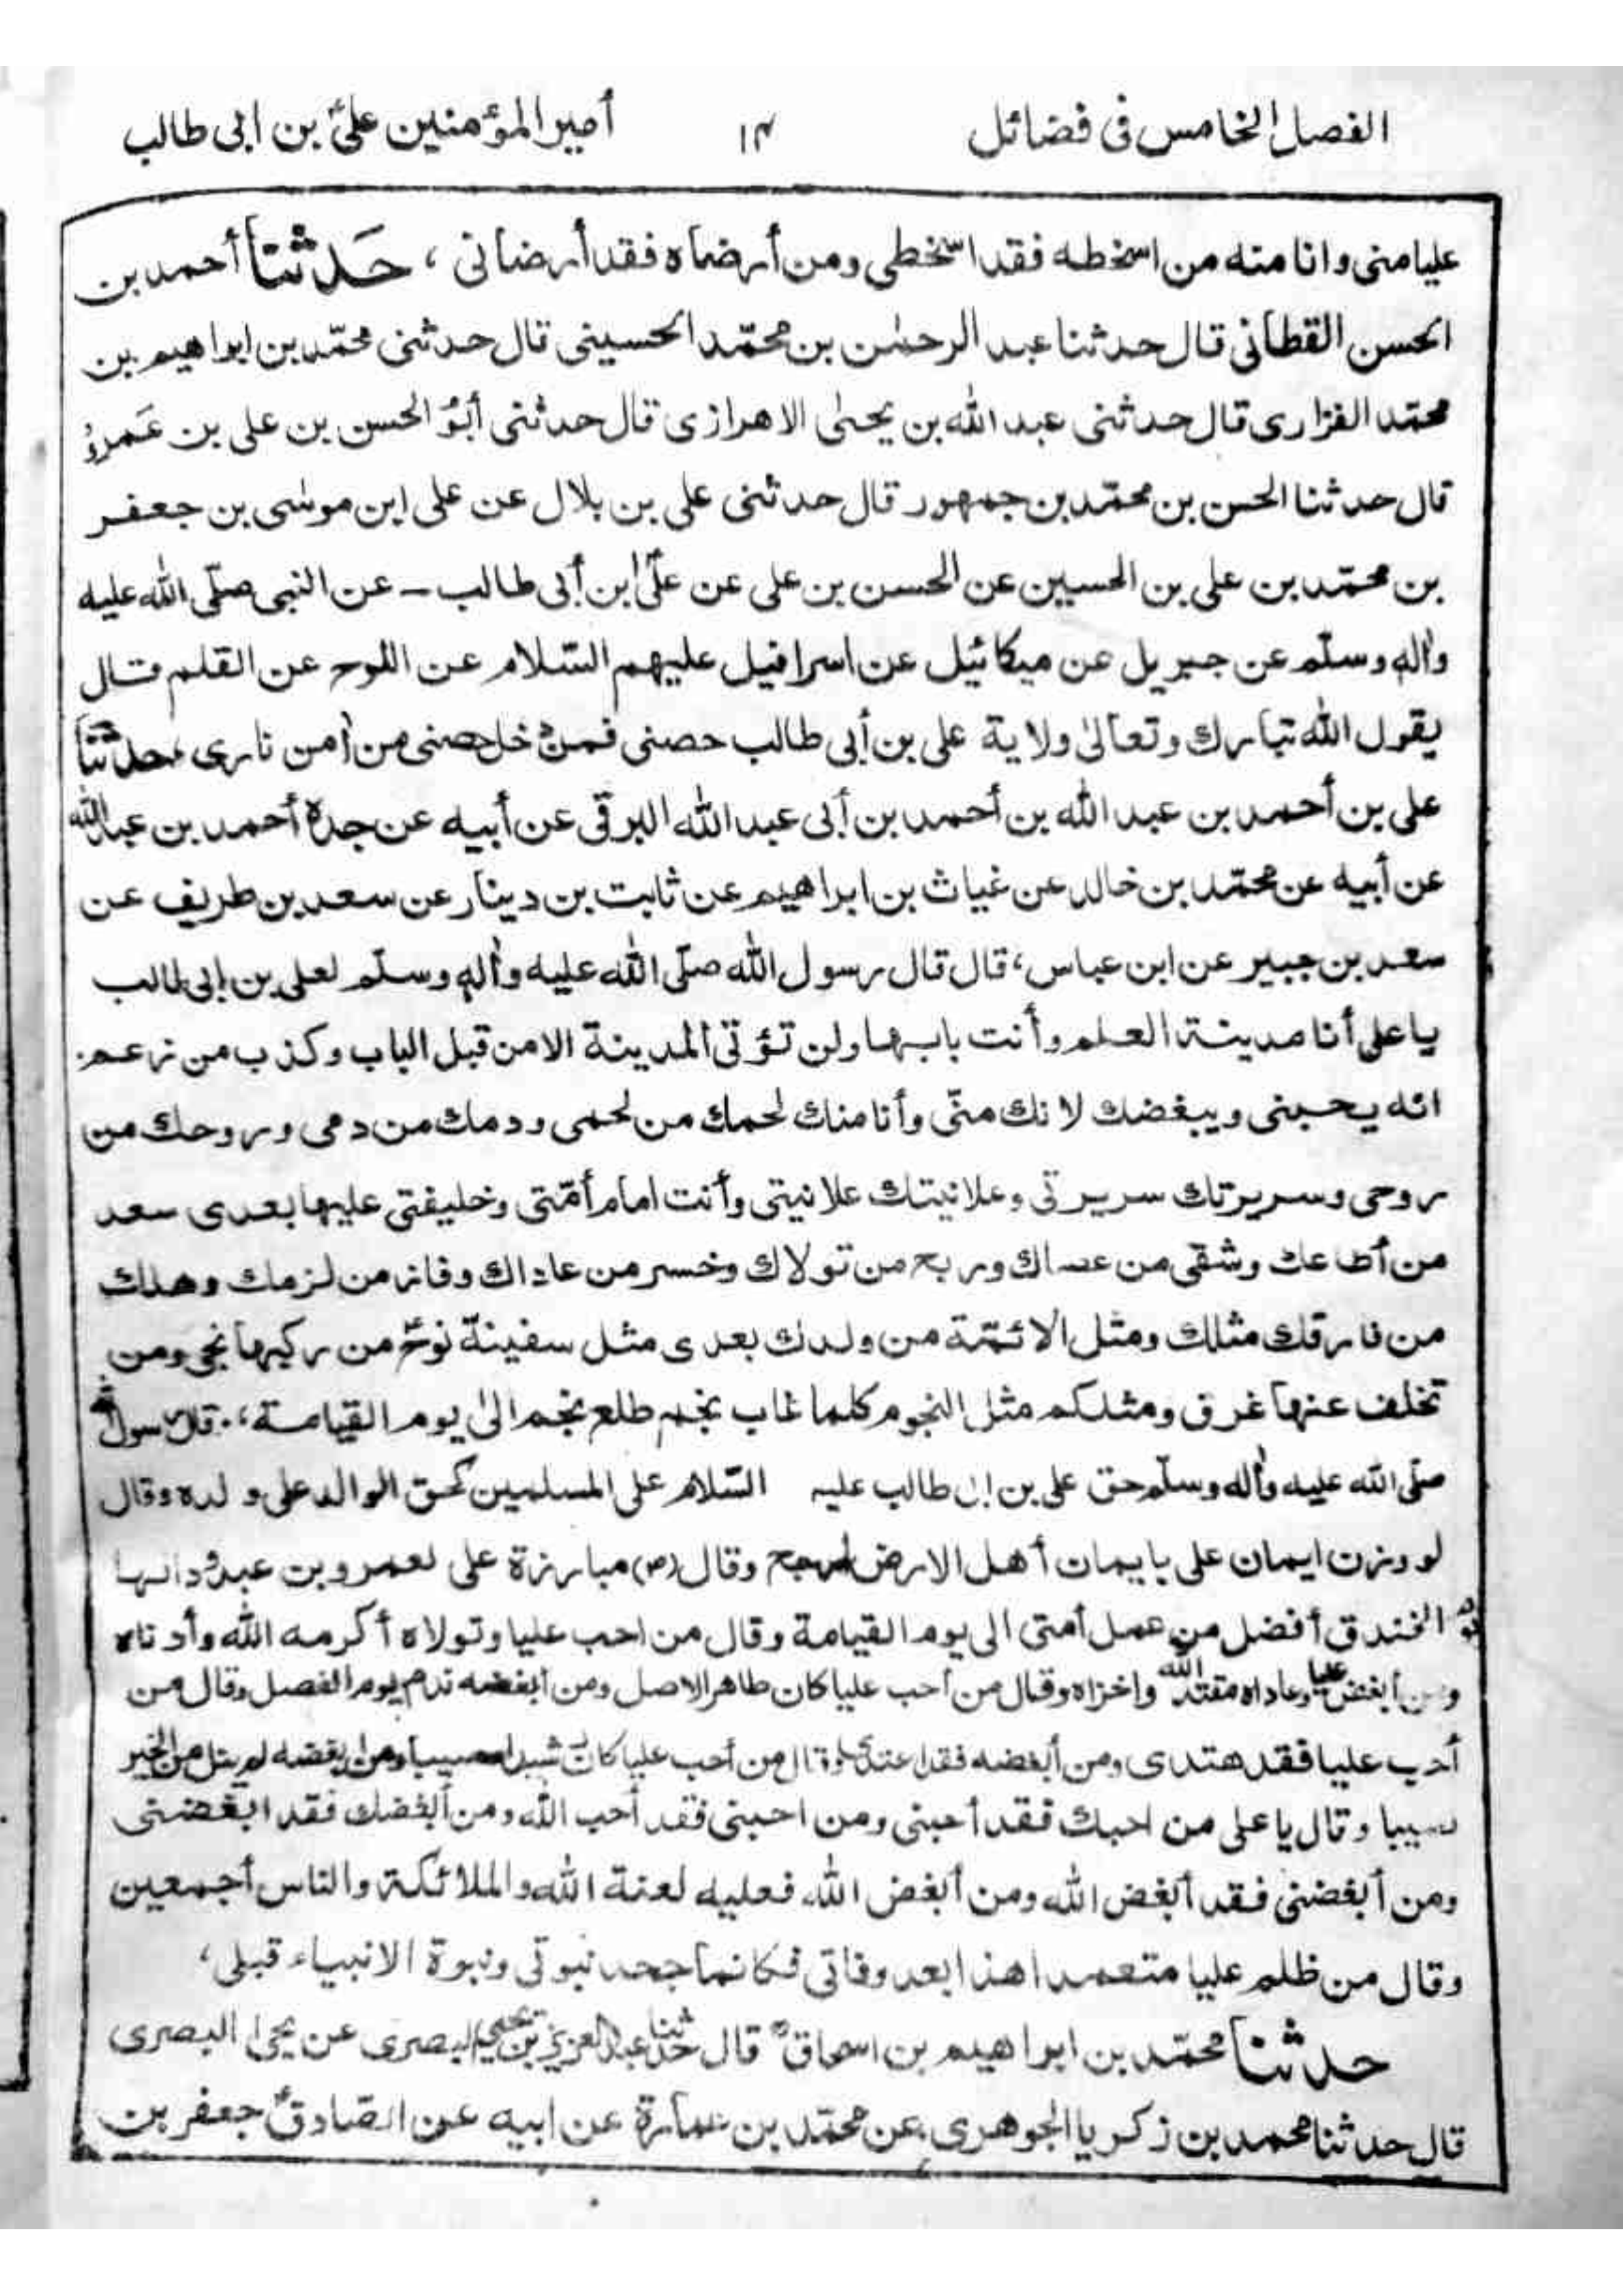 الفصل الخامس فى فضائل ١٤ أمير المؤمنين علىّ بن ابى طالب
عليا منى وانا منه من اسخطه فقد اسخطى ومن أرضاه فقد أرضانى ، حَدثنا أحمد بن
الحسن القطانى قال حدثنا عبد الرحمٰن بن محمّد الحسينى قال حدثنى محمّد بن ابراهيم بن
محمّد الفزارى قال حدثنى عبد الله بن يحيىٰ الاهرازى قال حدثنى أبوُ الحسن بن على بن عَمروُ
قال حدثنا الحسن بن محمّد بن جمهور قال حدثنى على بن بلال عن على ابن موسٰى بن جعفر
بن محمّد بن على بن الحسين عن الحسن بن على عن علىّ ابن أبى طالب ـ عن النبى صلّى الله عليه
واٰلهٖ وسلّم عن جبريل عن ميكائيل عن اسرافيل عليهم السّلام عن اللوح عن القلم قال
يقول الله تبارك وتعالىٰ ولاية على بن أبى طالب حصنى فمن دخل حصنى من أمن نارى ، حدثنا
على بن أحمد بن عبد الله بن أحمد بن أبى عبد الله البرقى عن أبيه عن جدهٖ أحمد بن عبد الله
عن أبيه عن محمّد بن خالد عن غياث بن ابراهيم عن ثابت بن دينار عن سعد بن طريف عن
سعد بن جبير عن ابن عباس ، قال قال رسول الله صلّى الله عليه واٰلهٖ وسلّم لعلى بن ابى طالب
يا على أنا مدينة العلم وأنت بابها ولن تؤتى المدينة الا من قبل الباب وكذب من زعم
انه يحبنى ويبغضك لانك منّى وأنا منك لحمك من لحمى ودمك من دمى وروحك من
روحى وسريرتك سريرتى وعلانيتك علانيتى وأنت امام أمّتى وخليفتى عليها بعدى سعد
من أطاعك وشقى من عصاك وربح من تولاك وخسر من عاداك وفاز من لزمك وهلك
من فارقك مثلك ومثل الائمّة من ولدك بعدى مثل سفينة نوحؑ من ركبها نجى ومن
تخلف عنها غرق ومثلكم مثل النجوم كلما غاب نجم طلع نجم الىٰ يوم القيامة ، قال رسول الله
صلّى الله عليه واٰله وسلّم حق على بن ابى طالب عليه السّلام على المسلمين كحق الوالد على ولده وقال
لو وزن ايمان على بايمان أهل الارض لرجح وقال (ص) مبارزة على لعمرو بن عبد
يوم الخندق أفضل من عمل أمتى الى يوم القيامة وقال من احب عليا وتولاه أكرمه الله وأدناه
ومن أبغض عليا وعاداه مقته الله واخزاه وقال من أحب عليا كان طاهر الاصل ومن أبغضه ندم يوم الفصل وقال من
أحب عليا فقد هتدى ومن أبغضه فقد اعتدى وقال من أحب عليا كان ومن ابغضه لم ينل من الخير
وقال يا على من احبك فقد أحبنى ومن احبنى فقد أحب الله ومن أبغضك فقد ابغضنى
ومن أبغضنى فقد أبغض الله ومن أبغض الله فعليه لعنة الله والملائكة والناس أجمعين
وقال من ظلم عليا متعمدا هذا بعد وفاتى فكانما جحد نبوتى ونبوة الانبياء قبلى ،
حدثنا محمّد بن ابراهيم بن اسحاق قال حدثنا عبد العزيز بن يحيى البصرى عن يحيٰ البصرى
قال حدثنا محمد بن زكريا الجوهرى عن محمّد بن عمارة عن ابيه عن الصّادقؑ جعفر بن